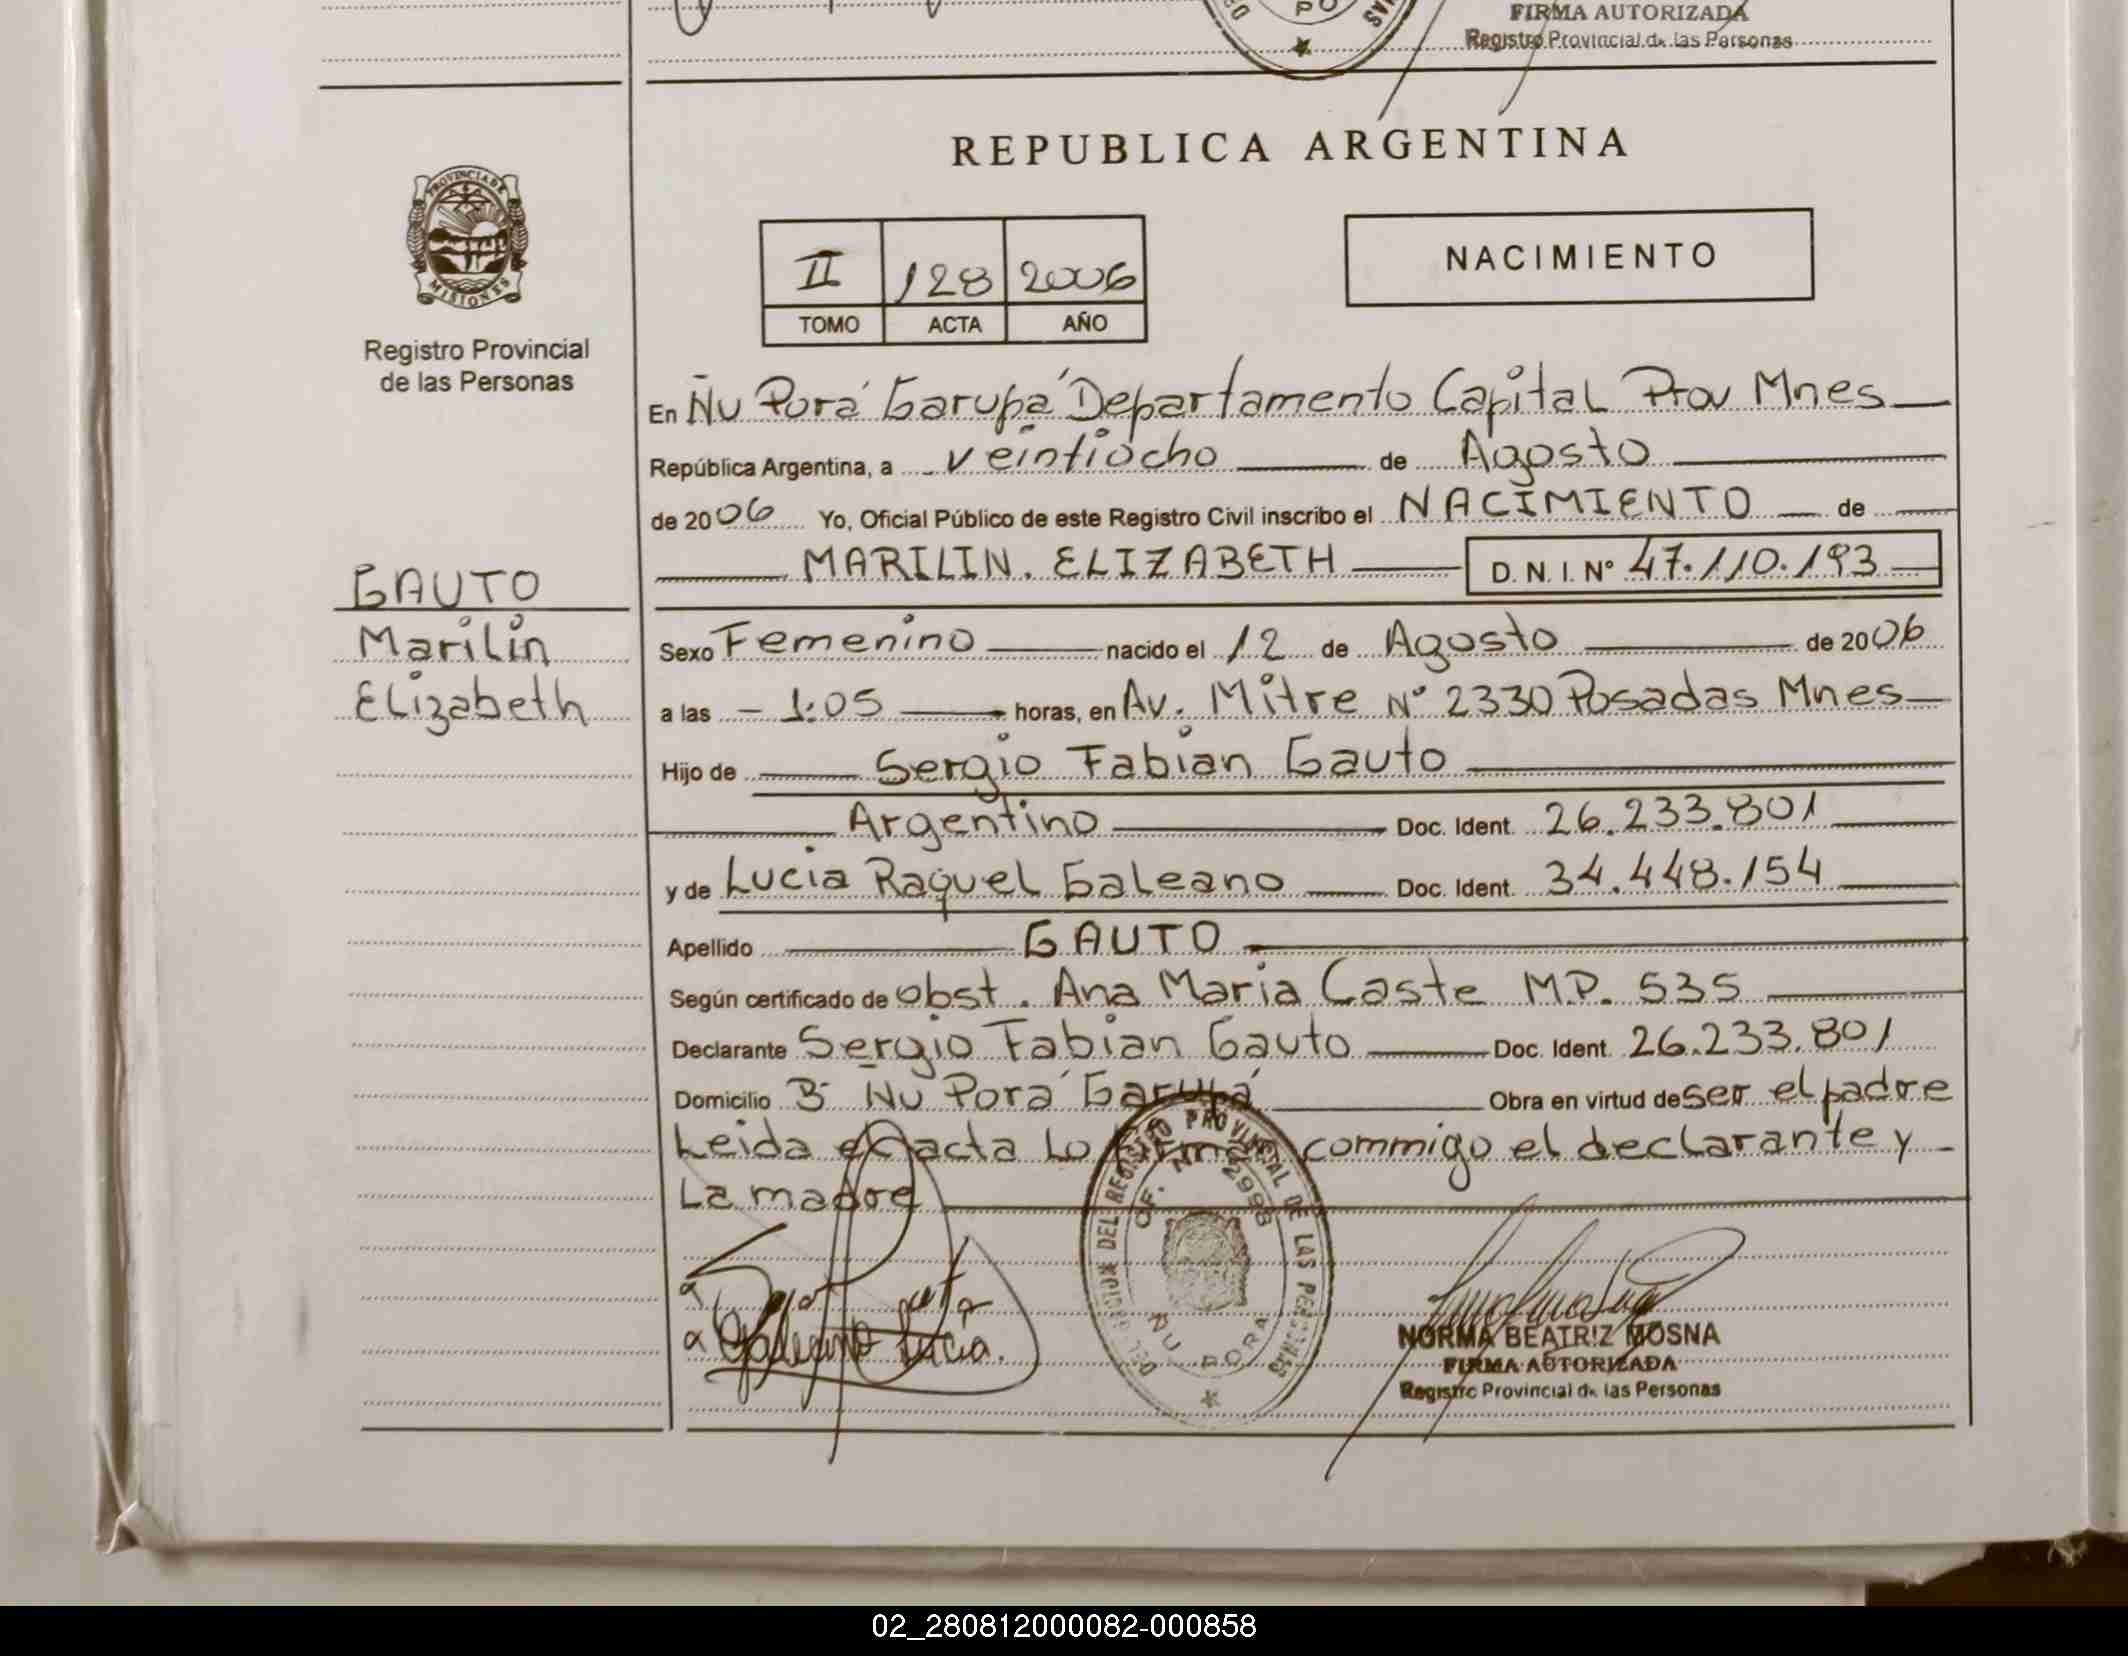 FIRMA AUTORIZADA
Registro Provincial de las Personas
REPUBLICA ARGENTINA
PROVINCIA DE
MISIONES
Registro Provincial
de las Personas
II 128 2006
TOMO ACTA AÑO
NACIMIENTO
En Ñu Porá Garupá Departamento Capital Prov Mnes
República Argentina, a veintiocho de Agosto
de 2006 Yo, Oficial Público de este Registro Civil inscribo el NACIMIENTO de
MARILIN. ELIZABETH D. N. I. Nº 47.110.193
GAUTO
Marilin
Elizabeth
Sexo Femenino nacido el 12 de Agosto de 2006
a las - 1:05 horas, en Av. Mitre Nº 2330 Posadas Mnes
Hijo de Sergio Fabian Gauto
Argentino Doc. Ident. 26.233.801
y de Lucia Raquel Galeano Doc. Ident. 34.448.154
Apellido GAUTO
Según certificado de obst. Ana Maria Caste M.P. 535
Declarante Sergio Fabian Gauto Doc. Ident. 26.233.801
Domicilio Bº Ñu Porá Garupá Obra en virtud de ser el padre
Leida el acta lo firman commigo el declarante y
La madre
DELEGACION DEL REGISTRO PROVINCIAL DE LAS PERSONAS
OF. Nº 2998
ÑU PORA
Galeano Lucia.
NORMA BEATRIZ MOSNA
FIRMA AUTORIZADA
Registro Provincial de las Personas
02_280812000082-000858